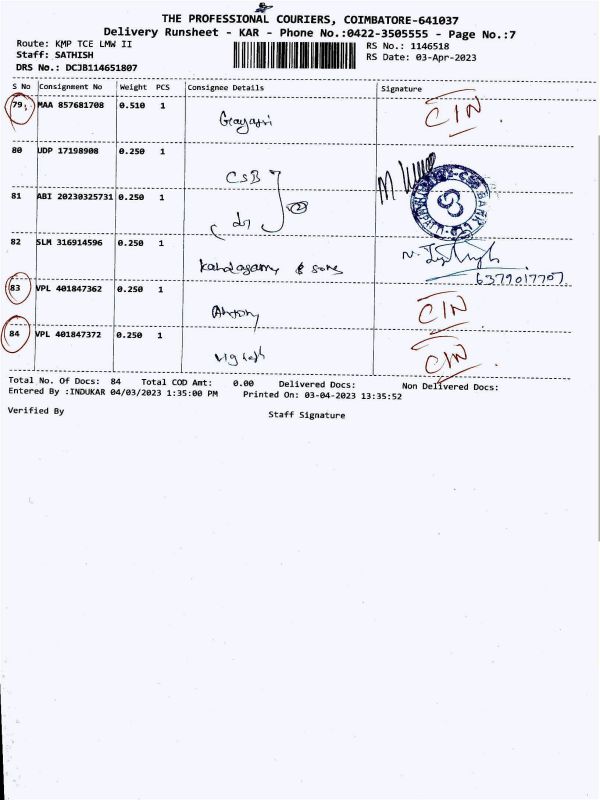 THE PROFESSIONAL COURIERS, COIMBATORE-641037
Delivery Runsheet - KAR - Phone No.:0422-3505555 - Page No.:7
Route: KMP TCE LMW II
RS No.: 1146518
Staff: SATHISH
RS Date: 03-Apr-2023
DRS No.: DCJB114651807
S No Consignment No Weight PCS Consignee Details Signature
79 MAA 857681708 0.510 1 CIN
80 UDP 17198908 0.250 1
CSB
81 ABI 20230325731 0.250 1
do
82 SLM 316914596 0.250 1
& sons 6379017707
83 VPL 401847362 0.250 1 CIN
Antony
84 VPL 401847372 0.250 1 CIN
Total No. Of Docs: 84 Total COD Amt: 0.00 Delivered Docs: Non Delivered Docs:
Entered By :INDUKAR 04/03/2023 1:35:00 PM Printed On: 03-04-2023 13:35:52
Verified By
Staff Signature